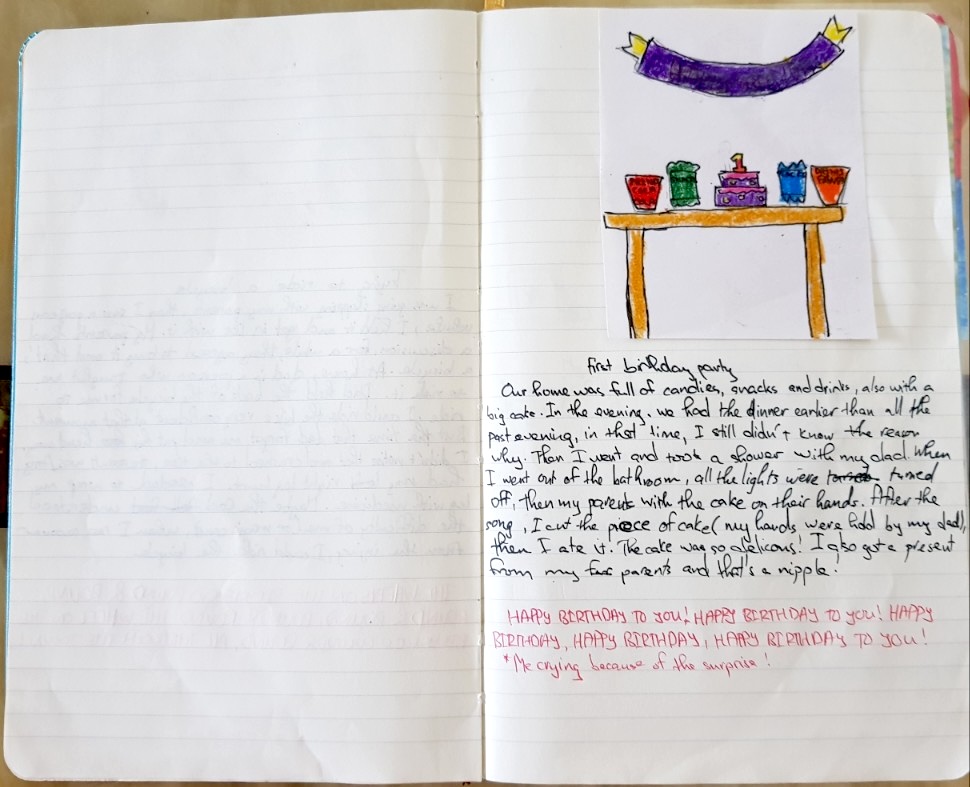 1
DRINK
COLA
DRINK
FANTA
First birthday party
Our home was full of candies, snacks and drinks, also with a
big cake. In the evening, we had the dinner earlier than all the
past evening, in that time, I still didn't know the reason
why. Then I went and took a shower with my dad. When
I went out of the bathroom, all the lights were turned
off, then my parents with the cake on their hands. After the
song, I cut the piece of cake (my hands were hold by my dad),
then I ate it. The cake was so delicous! I also got a present
from my parents and that's a nipple!
HAPPY BIRTHDAY TO YOU! HAPPY BIRTHDAY TO YOU! HAPPY
BIRTHDAY, HAPPY BIRTHDAY, HAPPY BIRTHDAY TO YOU!
*Me crying because of the surprise!